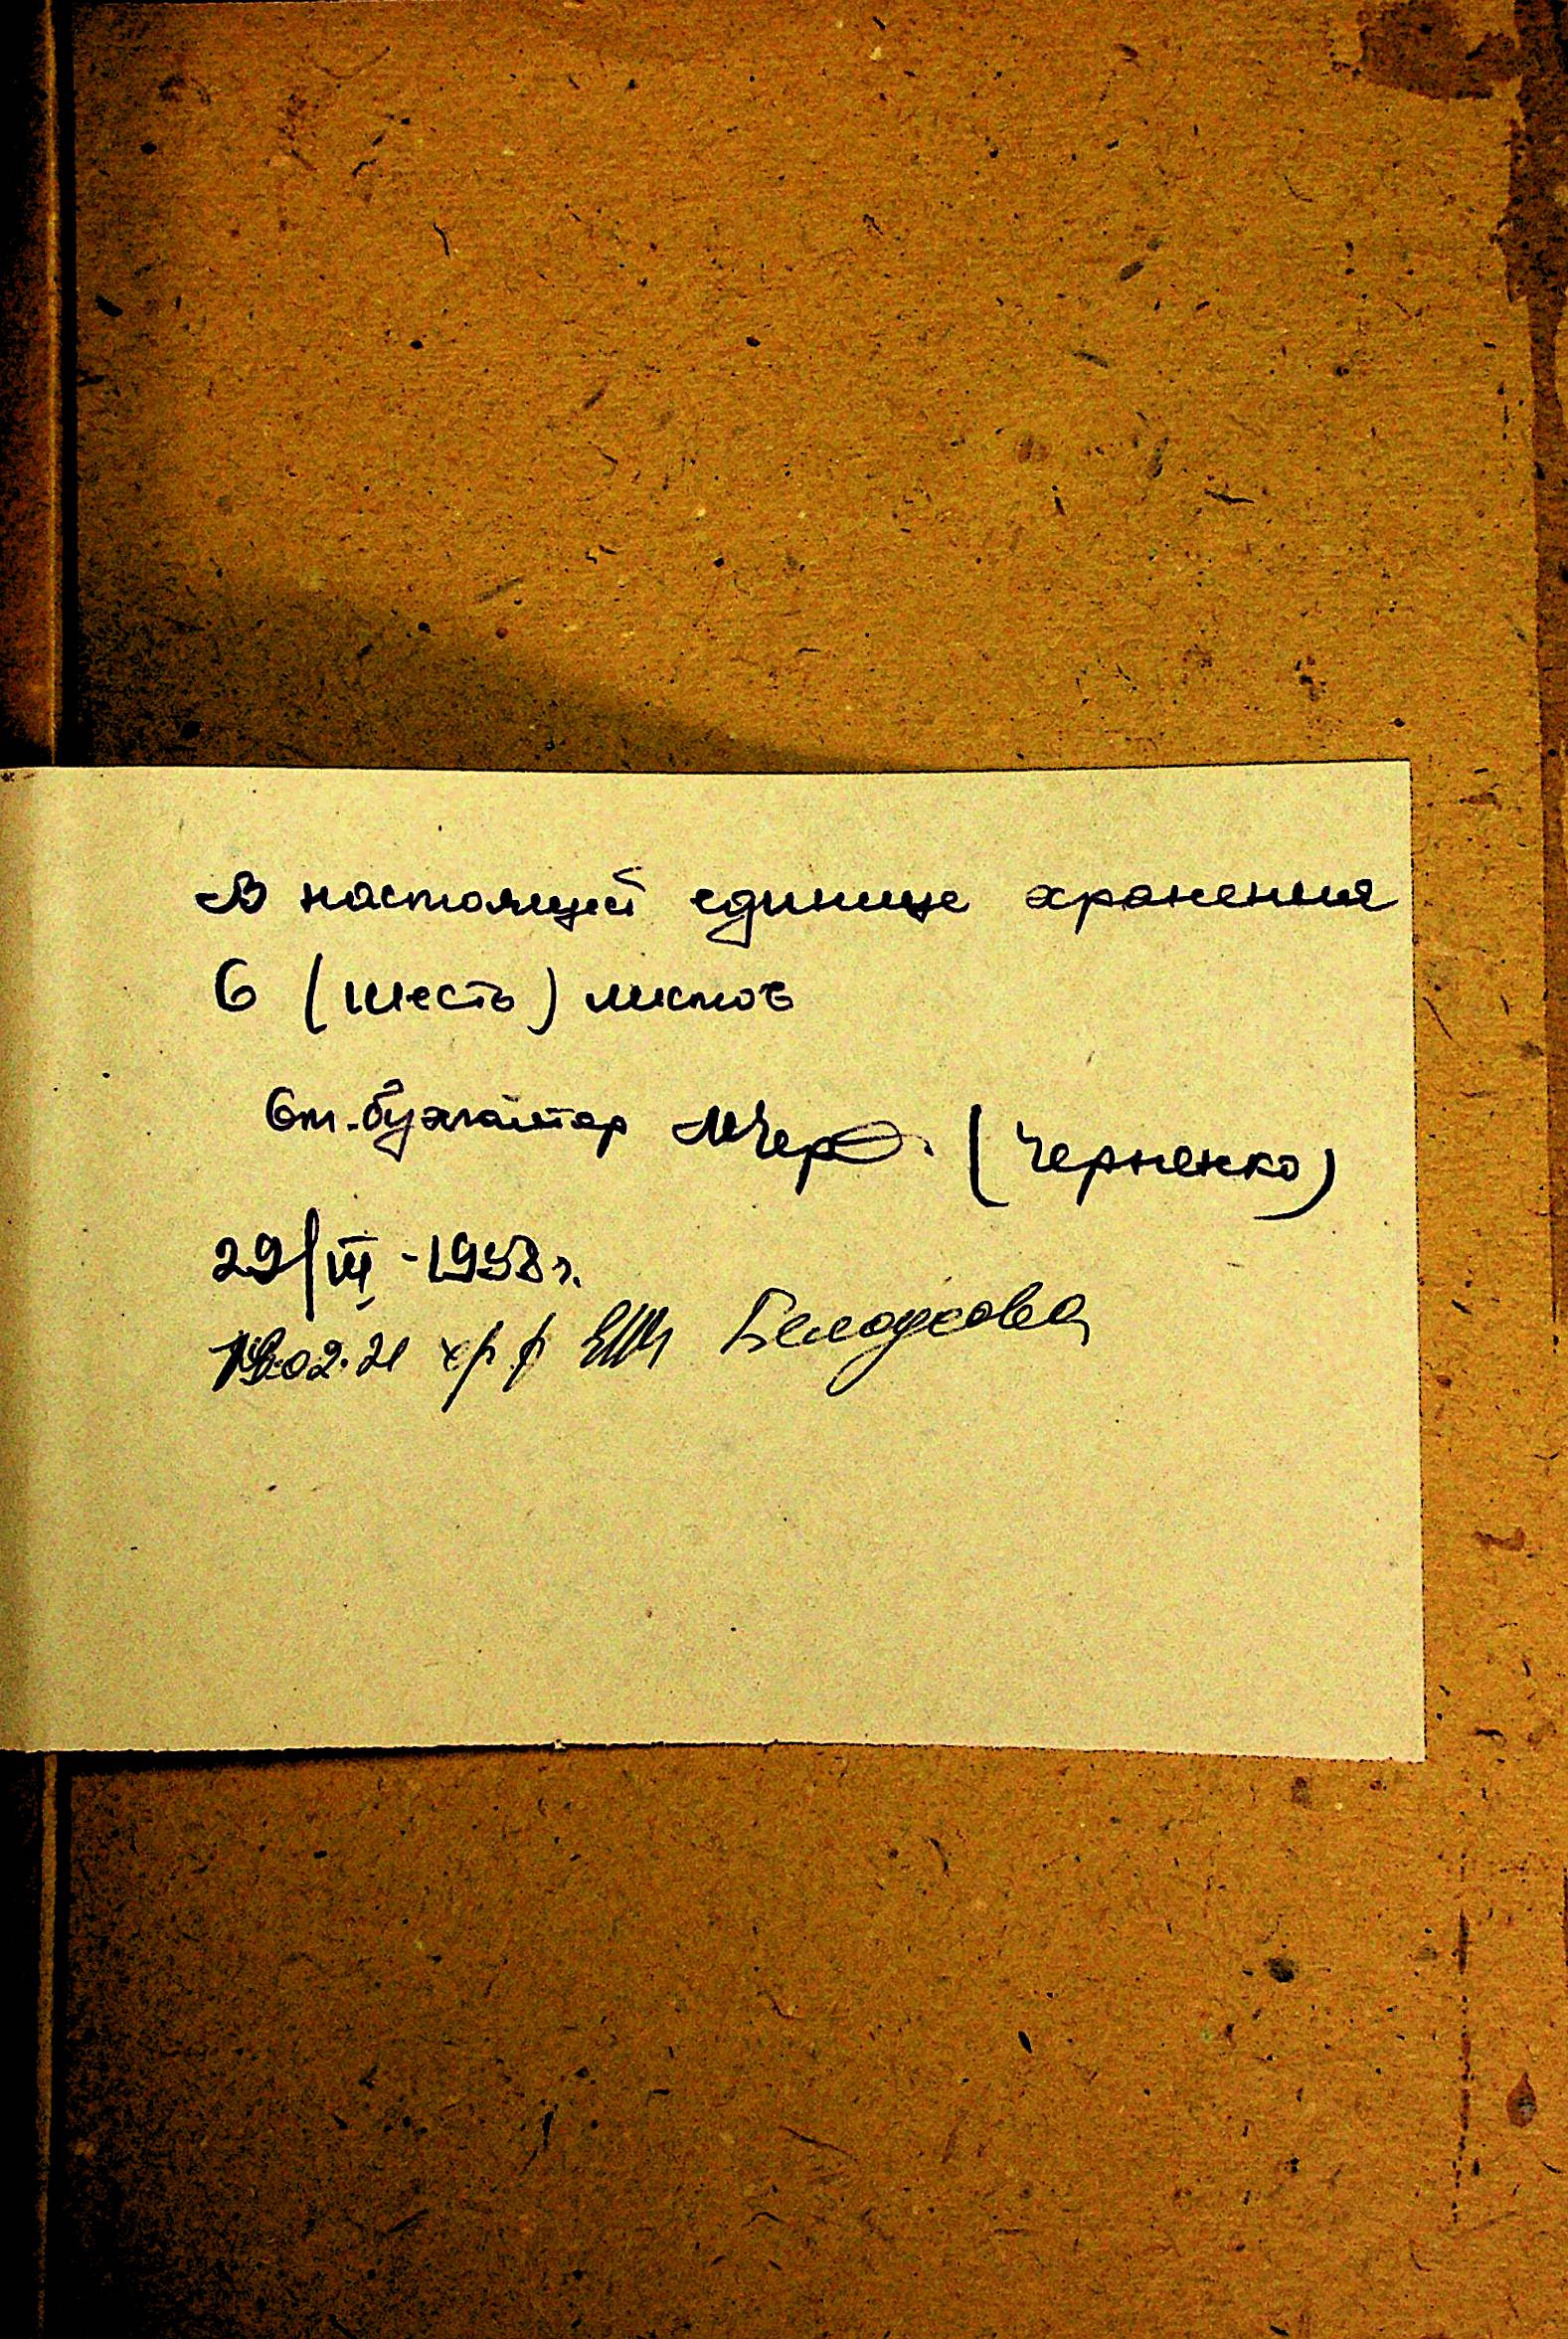 В настоящей единице хранения
6 (шесть) листов
Ст. бухгалтер МЧер (Черненко)
29/III - 1958 г.
19.02.21 хр ф Белоусова